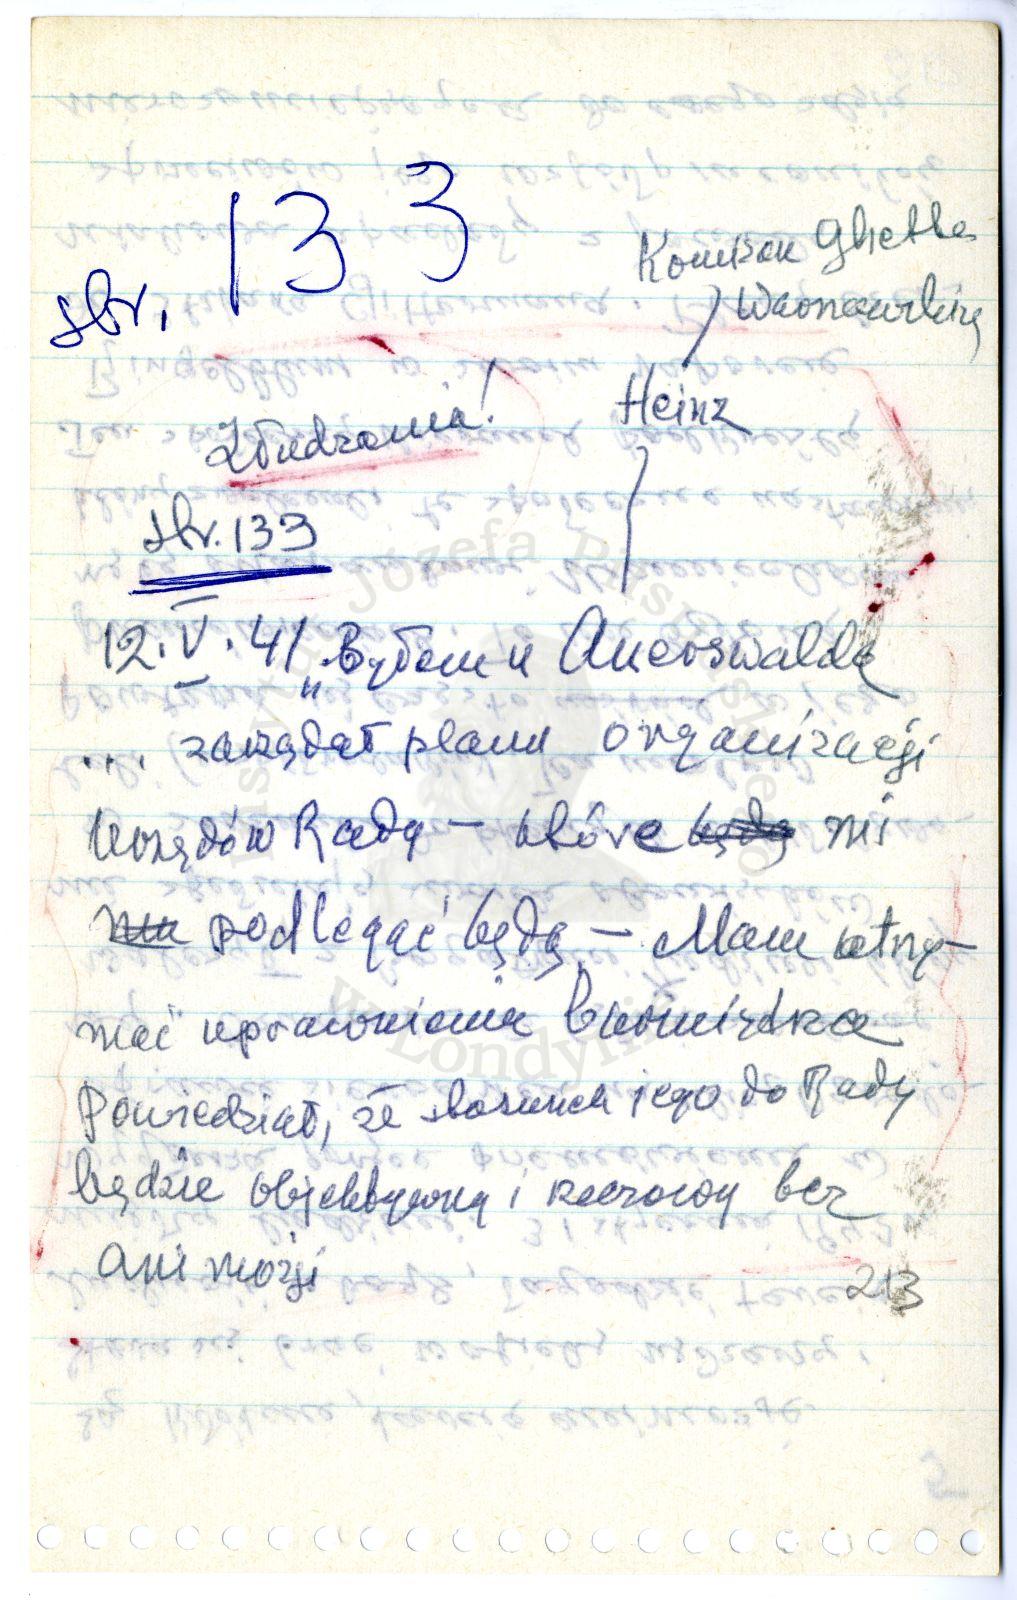 str. 133
Komisar Ghetta
Warszawskiego
Heinz
Złudzenia!
str. 133
12.V.41 „Byłem u Auerswalda
.... zażądał planu organizacji
Urzędów Rady – które będą mi
podlegać będą – Mam otrzy-
mać uprawnienia burmistrza
Powiedział, że stosunek jego do Rady
będzie objektywny i rzeczowy bez
animozji
213